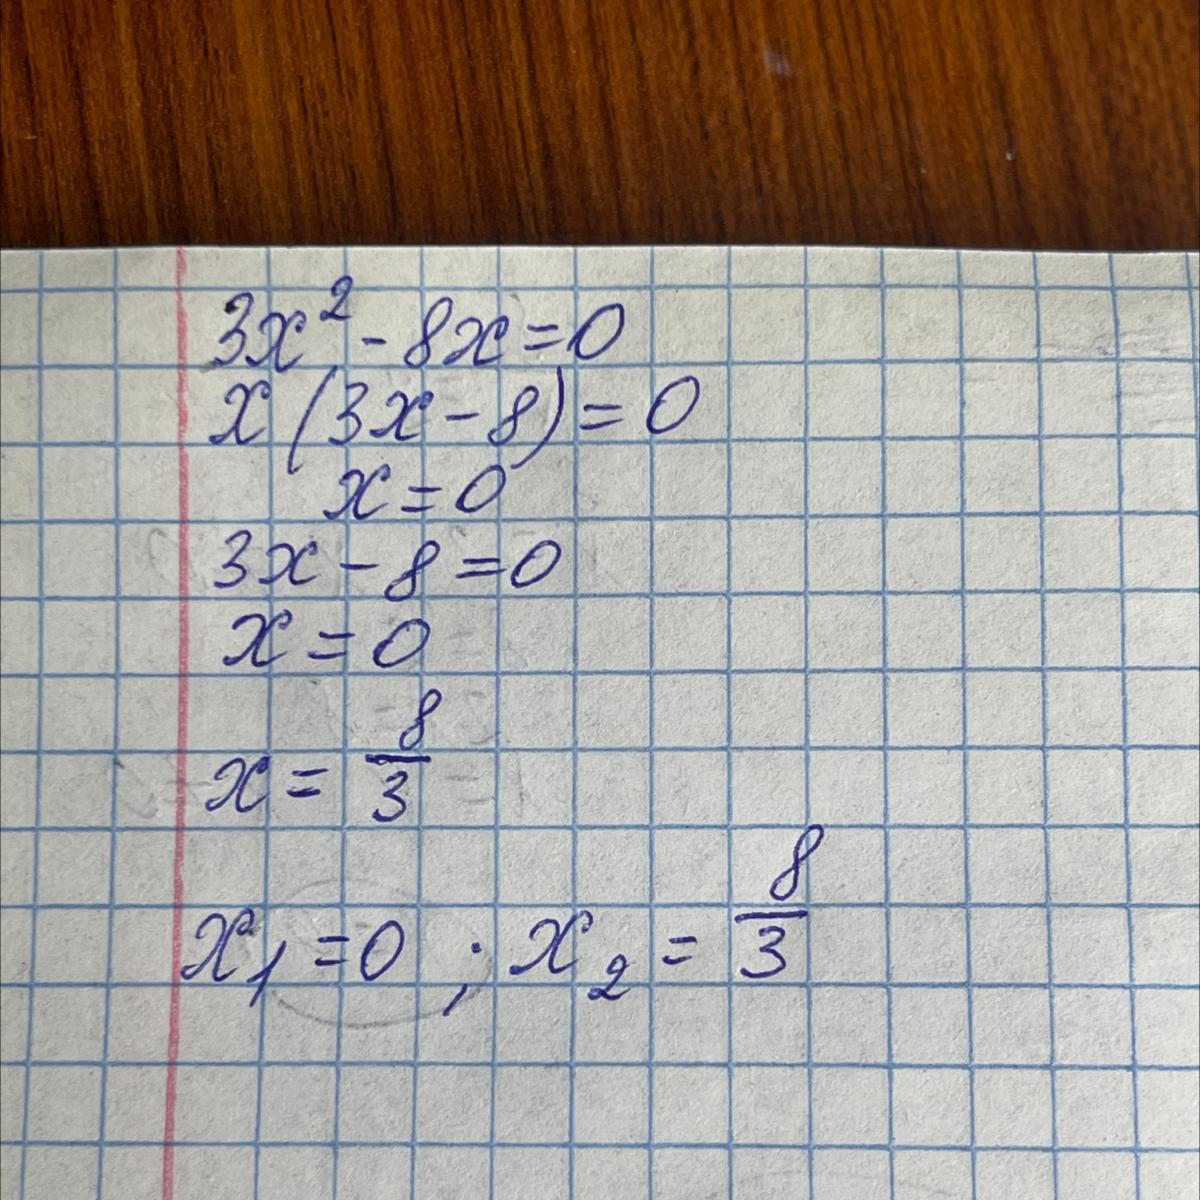 3x² - 8x = 0
x (3x - 8) = 0
x = 0
3x - 8 = 0
x = 0
x = 8/3
x₁ = 0 ; x₂ = 8/3